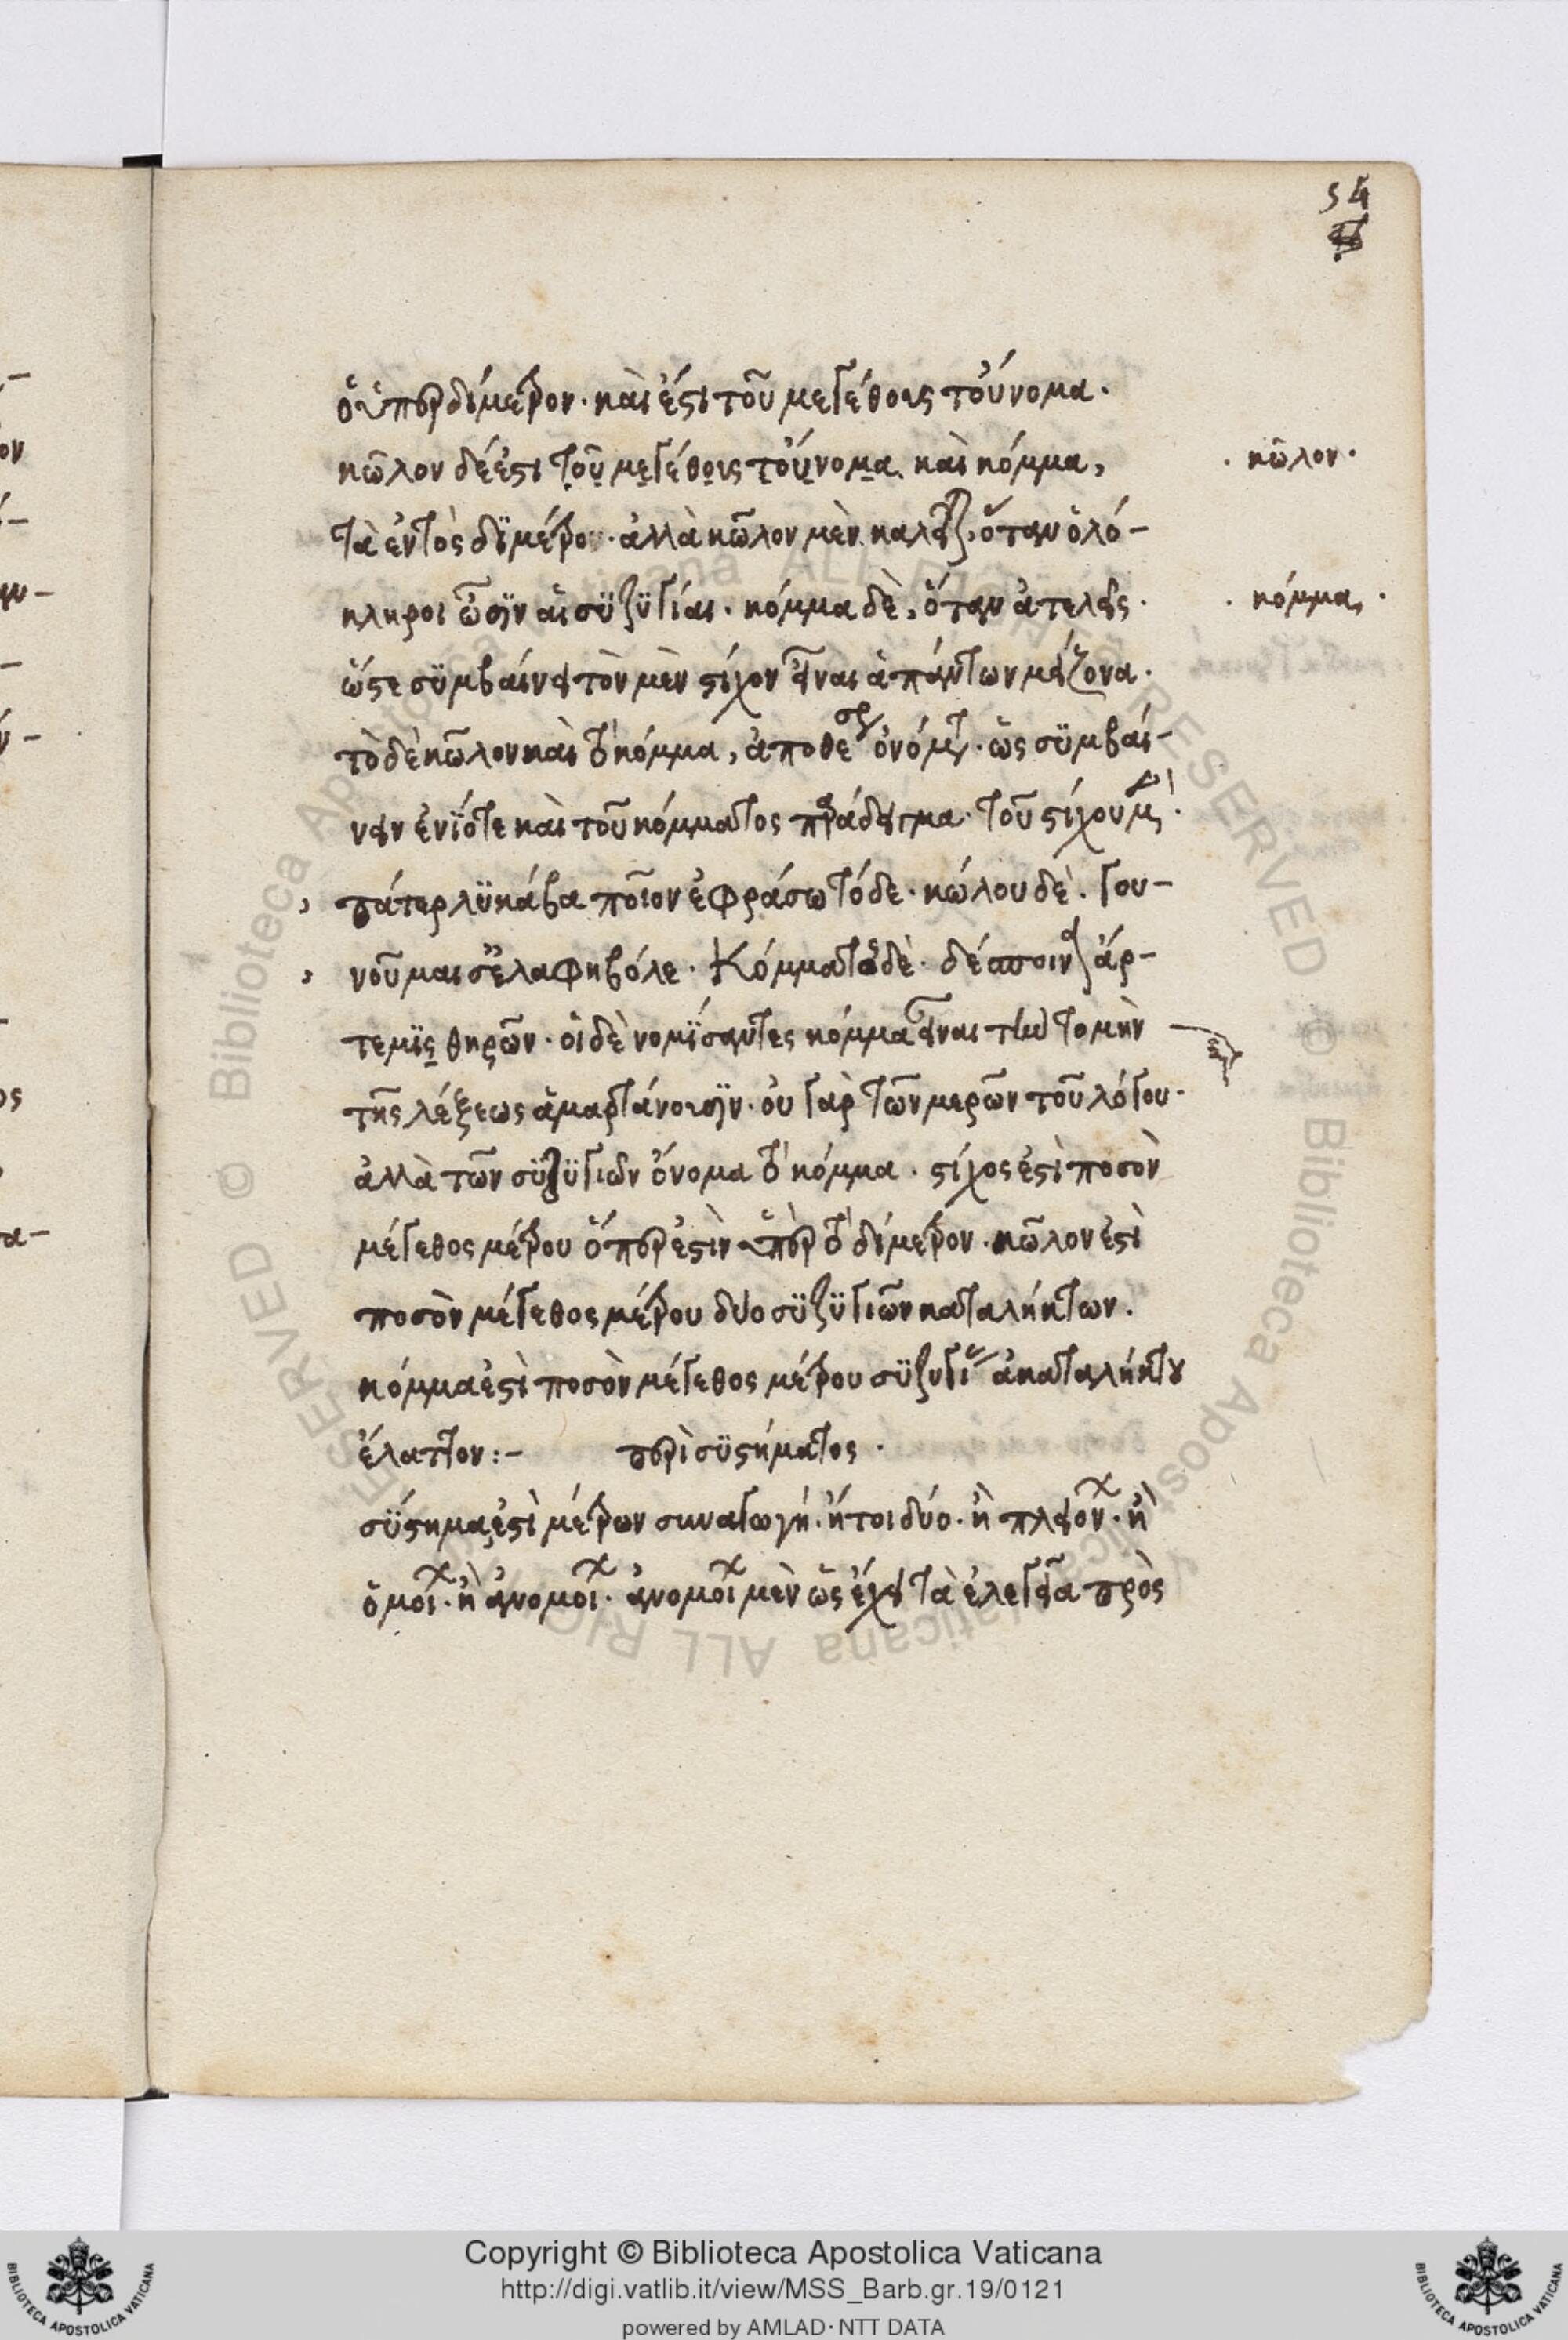 54
ὃ ὑπὲρ δίμετρον· καὶ ἔστι τοῦ μεγέθους τοὔνομα·
κῶλον δέ ἐστι τοῦ μεγέθους τοὔνομα καὶ κόμμα,
· κῶλον·
τὰ ἐντὸς διμέτρου· ἀλλὰ κῶλον μὲν καλεῖται, ὅταν ὁλό-
κληροι ὦσιν αἱ συζυγίαι· κόμμα δὲ, ὅταν ἀτελεῖς·
· κόμμα ·
ὥστε συμβαίνει τὸν μὲν στίχον εἶναι ἁπάντων μείζονα·
τὸ δὲ κῶλον καὶ τὸ κόμμα, ἀποθέσει ὀνόματι· ὡς συμβαί-
νειν ἐνίοτε καὶ τοῦ κόμματος παράδειγμα· τοῦ στίχου μὲν·
πάτερ λυκάβα ποῖον ἐφράσω τόδε· κώλου δὲ· γου-
νοῦμαι σ' ἐλαφηβόλε· Κόμματος δὲ· δέσποινα ἄρ-
τεμις θηρῶν· οἱ δὲ νομίσαντες κόμμα εἶναι τὴν τομὴν
τῆς λέξεως ἁμαρτάνουσιν· οὐ γὰρ τῶν μερῶν τοῦ λόγου·
ἀλλὰ τῶν συζυγιῶν ὄνομα τὸ κόμμα· στίχος ἐστὶ ποσὸν
μέγεθος μέτρου ὅπερ ἐστὶν ὑπὲρ τὸ δίμετρον· κῶλον ἐστὶ
ποσὸν μέγεθος μέτρου δύο συζυγιῶν καταλήκτων·
κόμμα ἐστὶ ποσὸν μέγεθος μέτρου συζυγίας ἀκαταλήκτου
ἔλαττον:- περὶ συστήματος·
σύστημα ἐστὶ μέτρων συναγωγή· ἤτοι δύο· ἢ πλειόνων· ἢ
ὁμοίων· ἢ ἀνομοίων· ἀνομοίων μὲν ὡς ἔχει τὰ ἐλεγεῖα πρὸς
Copyright © Biblioteca Apostolica Vaticana
http://digi.vatlib.it/view/MSS_Barb.gr.19/0121
powered by AMLAD·NTT DATA